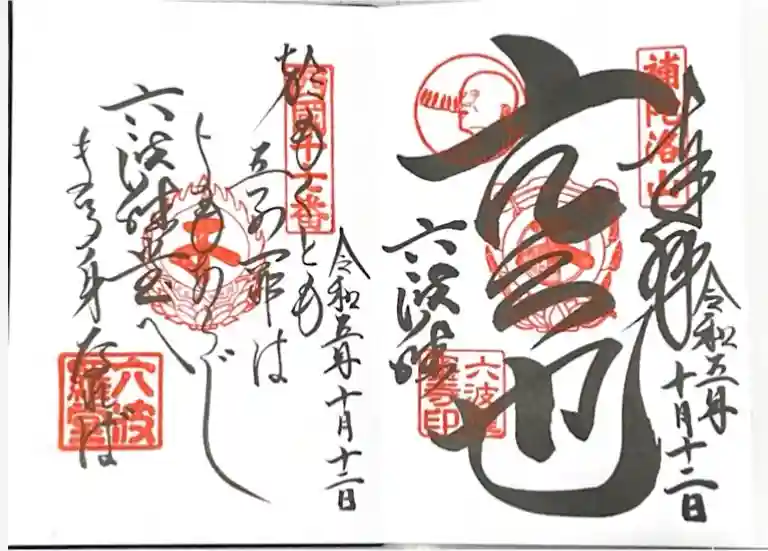 補陀洛山
奉拝
令和五年
十月十二日
六波羅
蜜寺印
西國十七番
令和五年
十月十二日
おもくとも
五つの罪は
よもあらじ
六波羅堂へ
まゐる身なれば
六波
羅堂